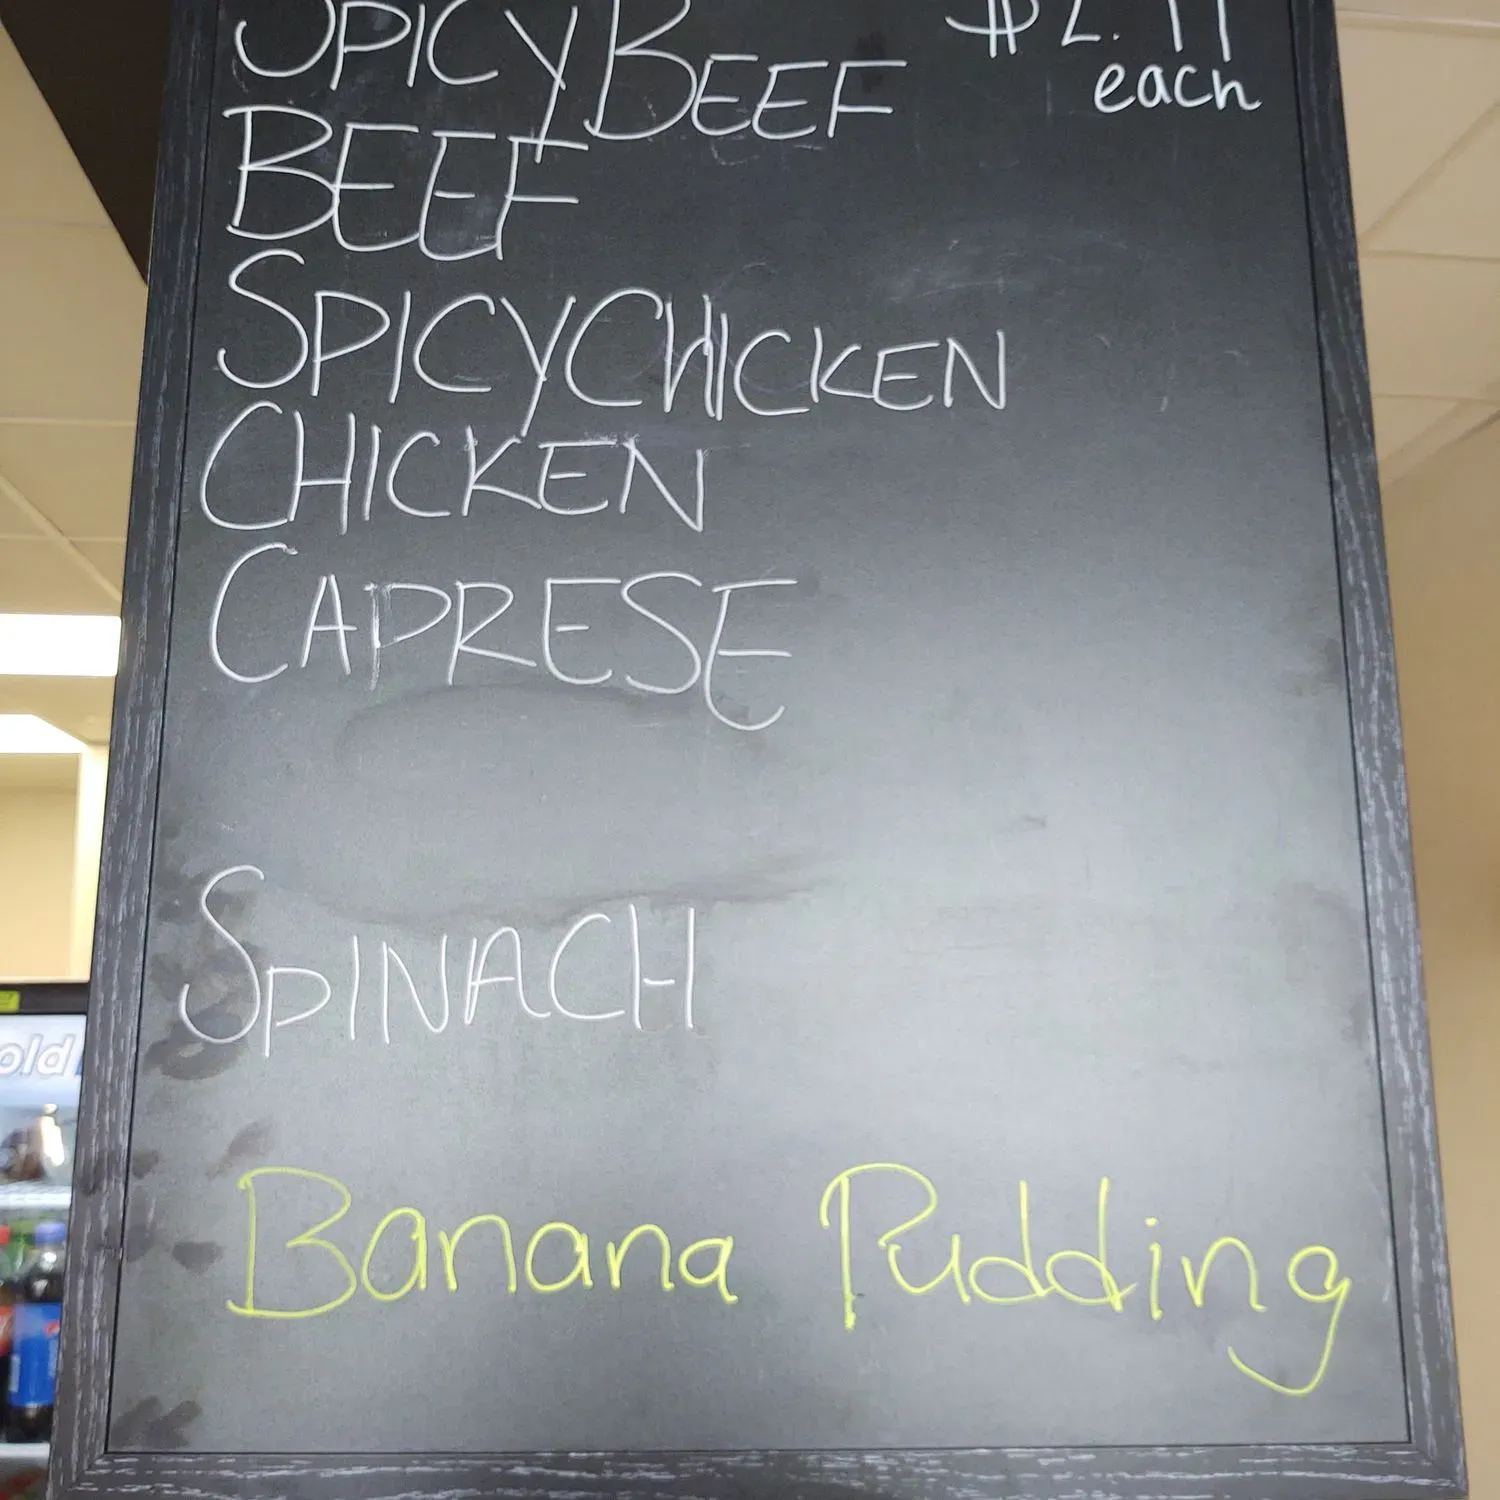 SPICY BEEF
each
BEEF
SPICY CHICKEN
CHICKEN
CAPRESE
SPINACH
Banana Pudding
old